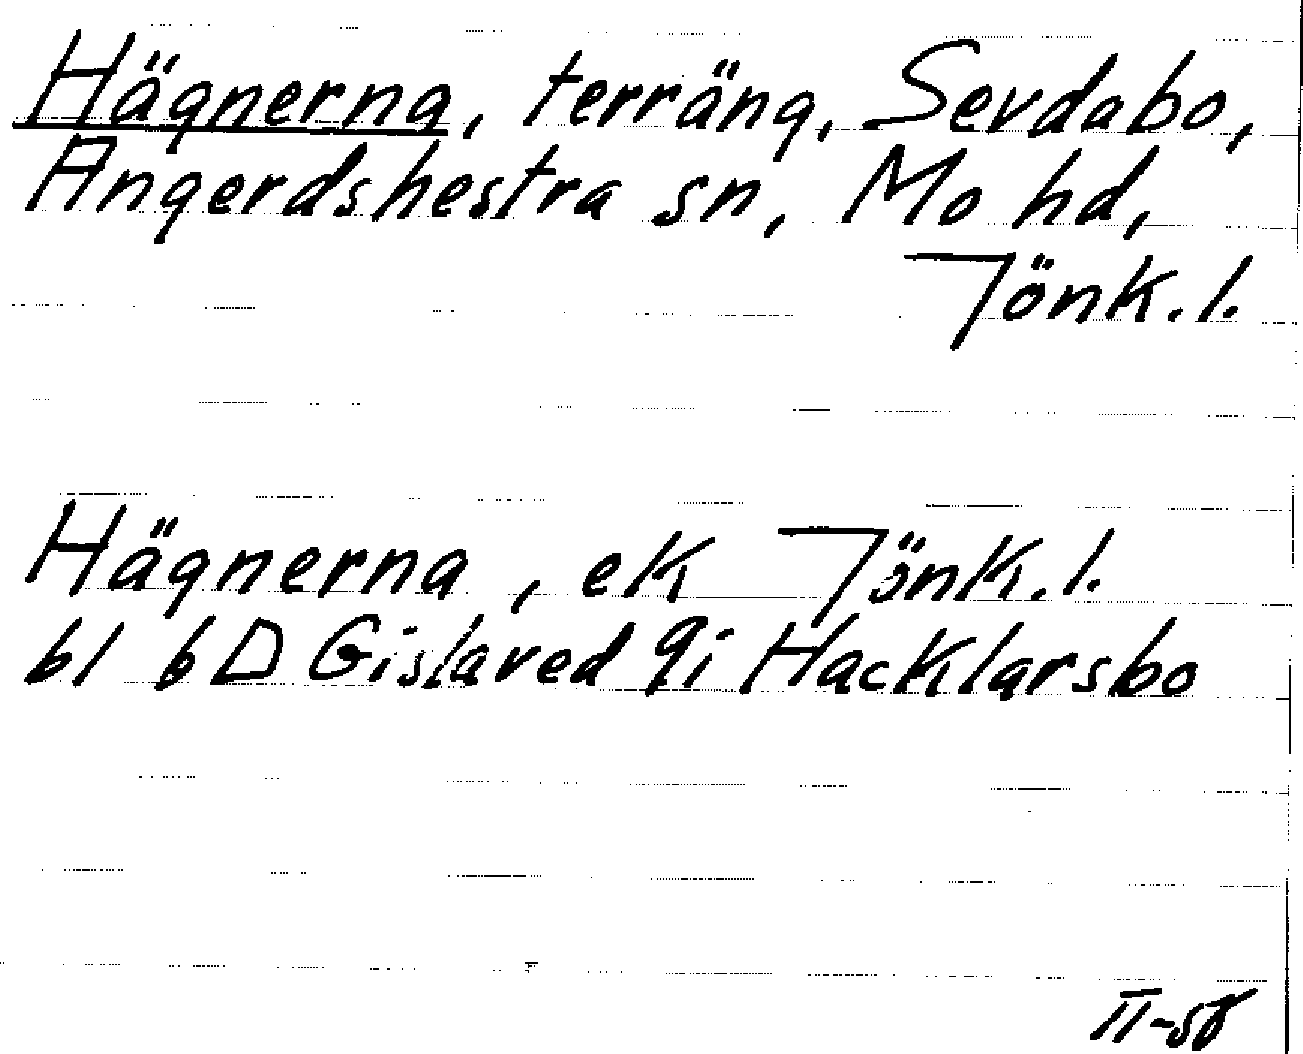 Hägnerna, terräng, Sevdabo,
Angerdshestra sn, Mo hd,
Jönk.l.
Hägnerna, ek Jönk.l.
bl 6D Gislaved 9i Hacklarsbo
II-58